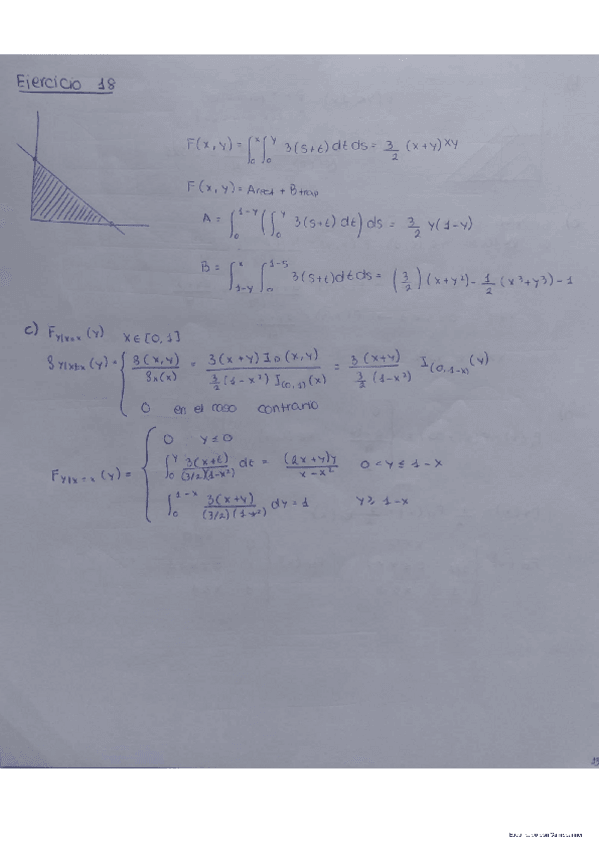 Ejercicio 18
F(x,y) = ∫_0^x ∫_0^y 3(s+t) dt ds = 3/2 (x+y) xy
F(x,y) = Arect + Btrap
A = ∫_0^{1-y} (∫_0^y 3(s+t) dt) ds = 3/2 y(1-y)
B = ∫_{1-y}^x ∫_0^{1-s} 3(s+t) dt ds = (3/2)(x+y²) - 1/2 (x³+y³) - 1
c) F_{Y|X=x}(y) x∈[0,1]
f_{Y|X=x}(y) = { f(x,y)/f_x(x) = 3(x+y) I_D(x,y) / 3/2 (1-x²) I_{(0,1)}(x) = 3(x+y) / 3/2 (1-x²) I_{(0,1-x)}(y)
0 en el caso contrario
F_{Y|X=x}(y) = { 0 y ≤ 0
∫_0^y 3(x+t)/(3/2)(1-x²) dt = (2x+y)y / x-x² 0<y≤ 1-x
∫_0^{1-x} 3(x+y)/(3/2)(1-x²) dy = 1 y≥ 1-x